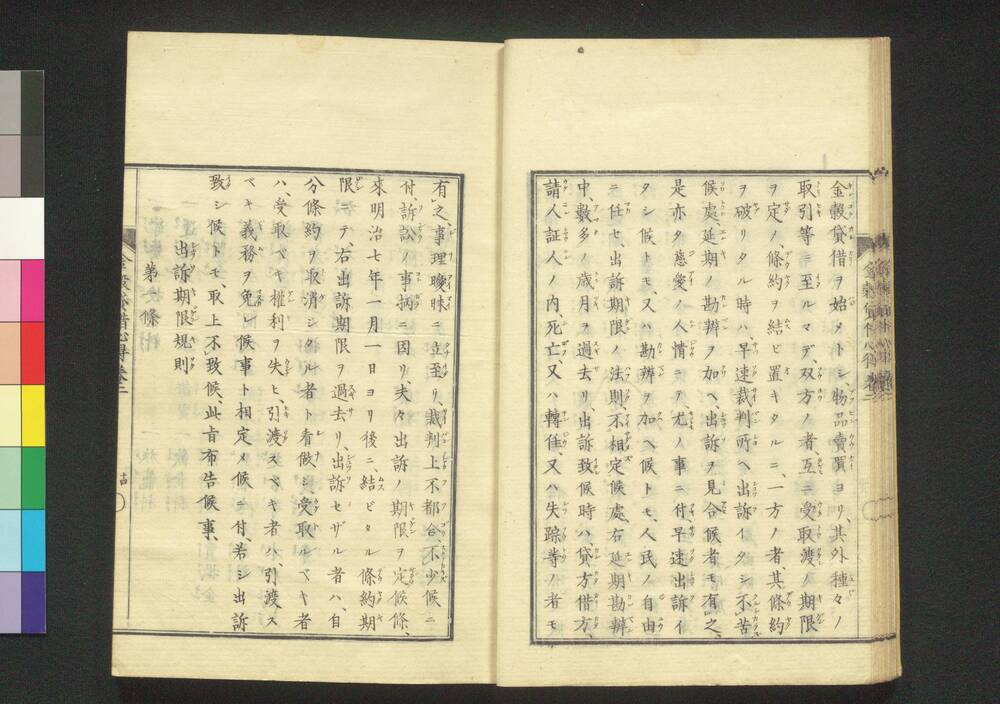 金穀貸借ヲ始メトシ、物品賣買ヨリ、其外種々ノ
取引等ニ至ルマデ、双方ノ者、互ニ受取渡ノ期限
ヲ定ノ、條約ヲ結ビ置キタルニ、一方ノ者、其條約
ヲ破リタル時ハ、早速裁判所ヘ出訴イタシ不苦
候處、延期ノ勘辨ヲ加ヘ、出訴ヲ見合候者モ有之、
是亦タ慈愛ノ人情ニテ、尤ノ事ニ付、早速出訴イ
タシ候トモ、又ハ勘辨ヲ加ヘ候トモ、人民ノ自由
ニ任セ、出訴期限ノ法則、不相定候處、右延期勘辨
中、數多ノ歳月ヲ過去リ、出訴致候時ハ、貸方借方、
請人証人ノ内、死亡、又ハ轉住、又ハ失踪等ノ者モ
有之、事理曖昧ニ立至リ、裁判上不都合、不少候ニ
付、訴訟ノ事柄ニ因リ、夫々出訴ノ期限ヲ定候條、
來明治七年一月一日ヨリ後ニ、結ビタル條約期
限ニテ、右出訴期限ヲ過去リ、出訴セザル者ハ、自
分條約ヲ取消シタル者ト看做シ、受取ルベキ者
ハ、受取ベキ權利ヲ失ヒ、引渡スベキ者ハ、引渡ス
ベキ義務ヲ免レ候事ト相定メ候ニ付、若シ出訴
致シ候トモ、取上不致候、此旨布告候事、
出訴期限規則
第一條
金穀貸借心得卷二